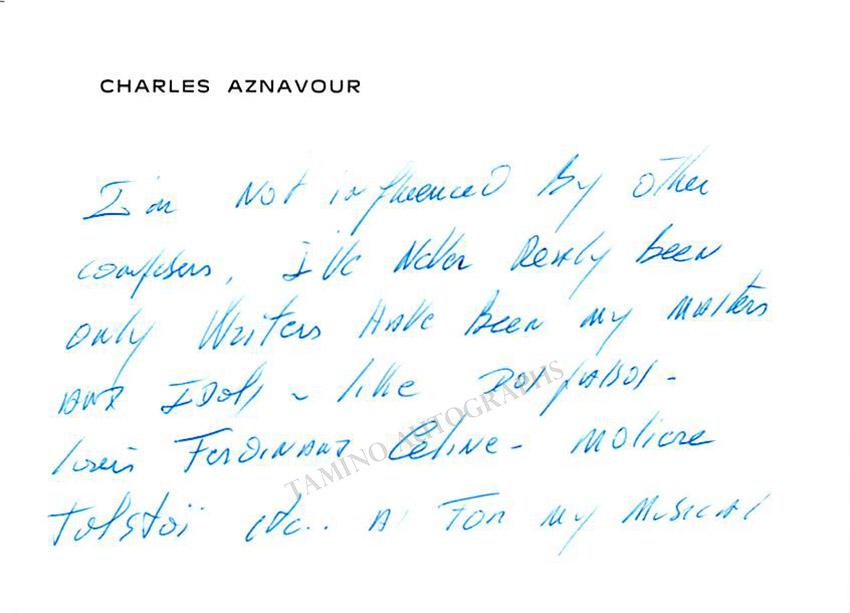 CHARLES AZNAVOUR
I'm Not influenced By other
composers, I've Never Really been
only Writers HAVE Been my masters
AND IDols - like
louis FERDINAND Céline - Moliere
Tolstoï etc.. As For my Musical
TAMINO AUTOGRAPHS